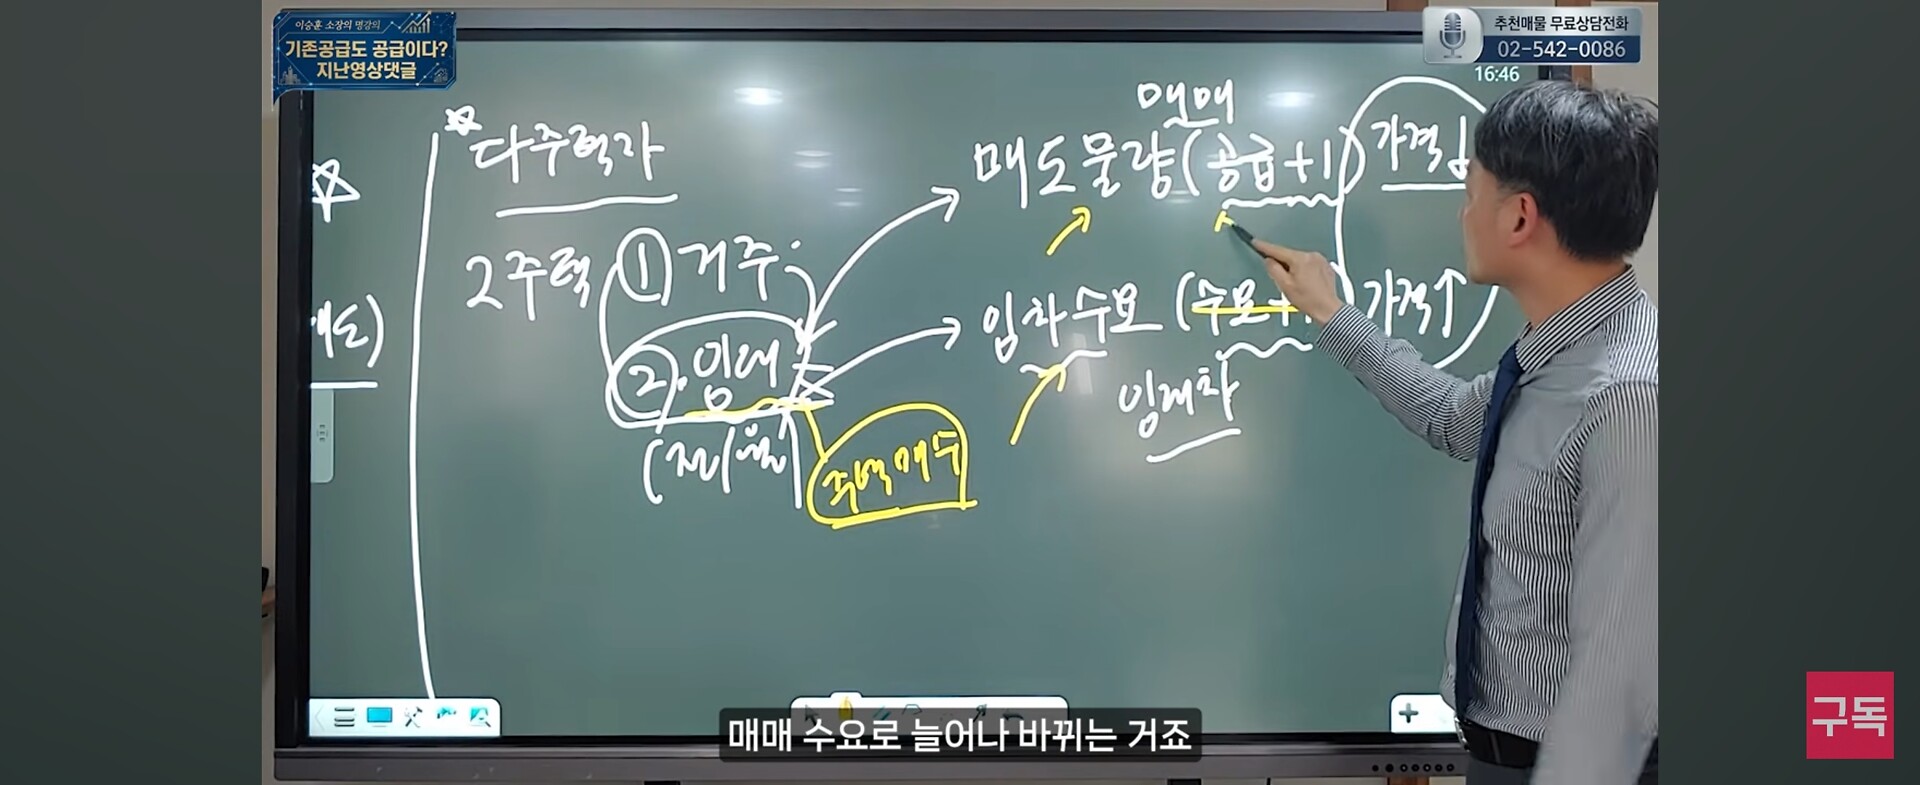 이승훈 소장의 명강의
기존공급도 공급이다?
지난영상댓글
추천매물 무료상담전화
02-542-0086
16:46
매매
다주택자
매도물량(공급+1) 가격
2주택 ① 거주
임차수요 (수요+ 가격↑
②. 임대
임대차
(전/월)
주택매수
매매 수요로 늘어나 바뀌는 거죠
구독